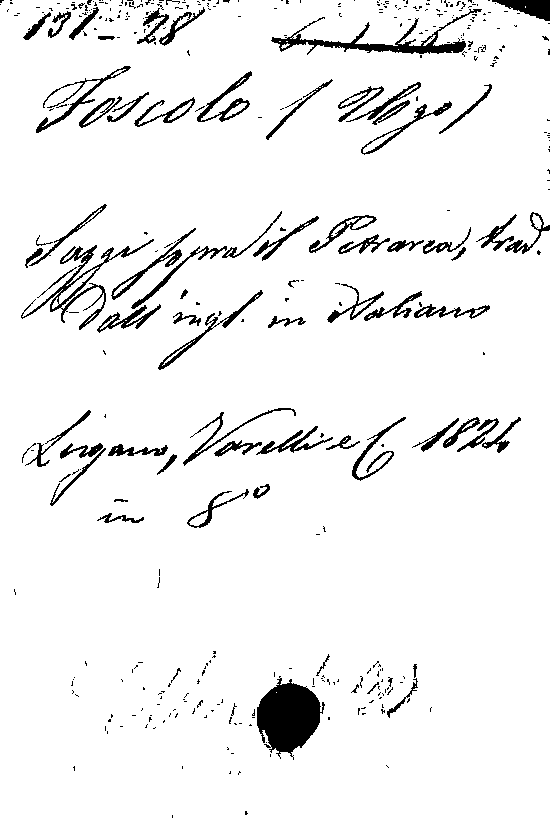 131-28
Foscolo (Ugo)
Saggi sopra il Petrarca, trad.
Dall'ingl. in italiano
Lugano, Vanelli e C. 1824
in 8°